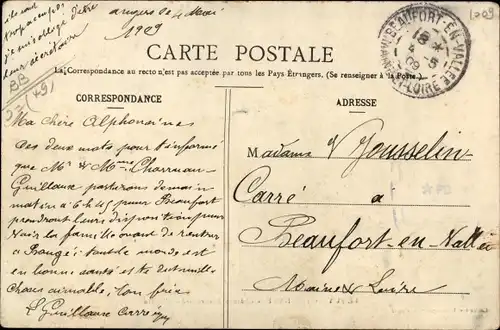 Angers le 4 Mai
1909
1909
BEAUFORT-EN-VALLÉE
CARTE POSTALE
La Correspondance au recto n'est pas acceptée par tous les Pays Étrangers. (Se renseigner à la Poste.)
CORRESPONDANCE
ADRESSE
Ma chère Alphonsine
Ces deux mots pour t'informé
que Mr & Mme
Guillaume partirons demain
matin à 6 h 45 pour Beaufort
prendront leurs disposition pour
voir la famille avant de rentrer
à Baugé; tout le monde est
en bonne santé et te
choses aimable, ton frère
Guillaume Carré
Madame Vve Jousselin-
Carré à
Beaufort-en-Vallée
Maine & Loire